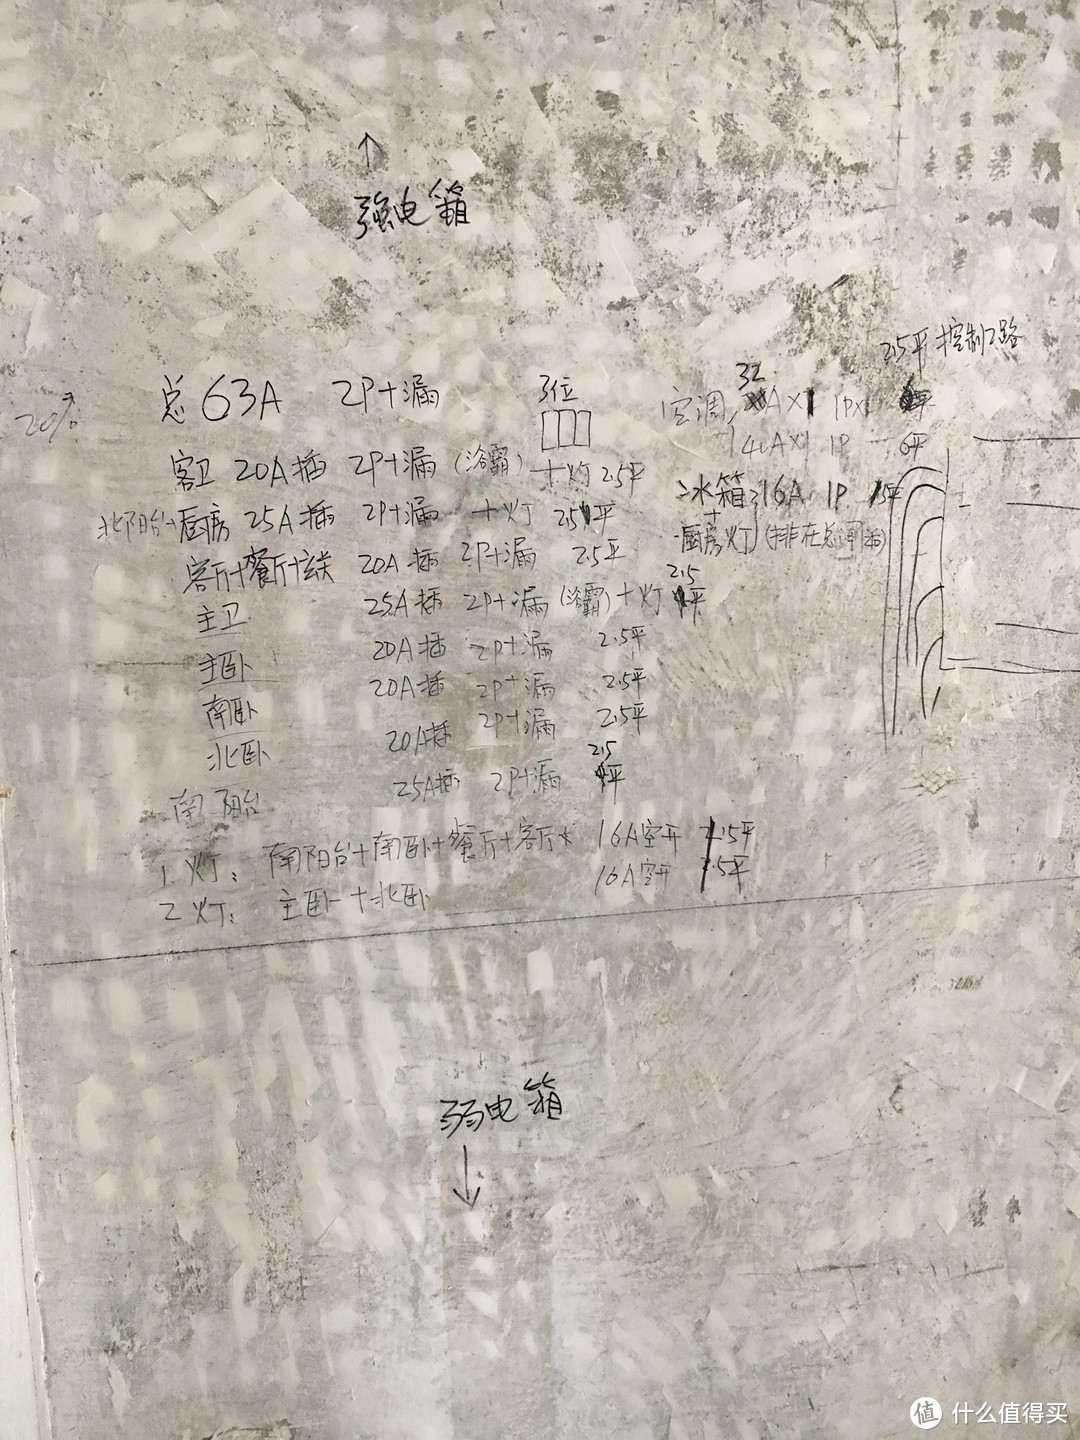 ↑
强电箱
2.5平 控制2路
20%
总 63A 2P+漏 3位
空调 32A×1 1P×
40A×1 1P 6平
客卫 20A插 2P+漏 (浴霸) +灯 2.5平
冰箱 16A 1P
+
厨房灯 (排在总
北阳台+厨房 25A插 2P+漏 +灯 2.5平
客厅+餐厅+玄关 20A插 2P+漏 2.5平
主卫 25A插 2P+漏 (浴霸) +灯 2.5平
主卧 20A插 2P+漏 2.5平
南卧 20A插 2P+漏 2.5平
北卧 20A插 2P+漏 2.5平
南阳台 25A插 2P+漏 2.5平
1 灯: 南阳台+南卧+餐厅+客厅 16A空开 .5平
2 灯: 主卧+北卧 16A空开 .5平
弱电箱
↓
值 什么值得买